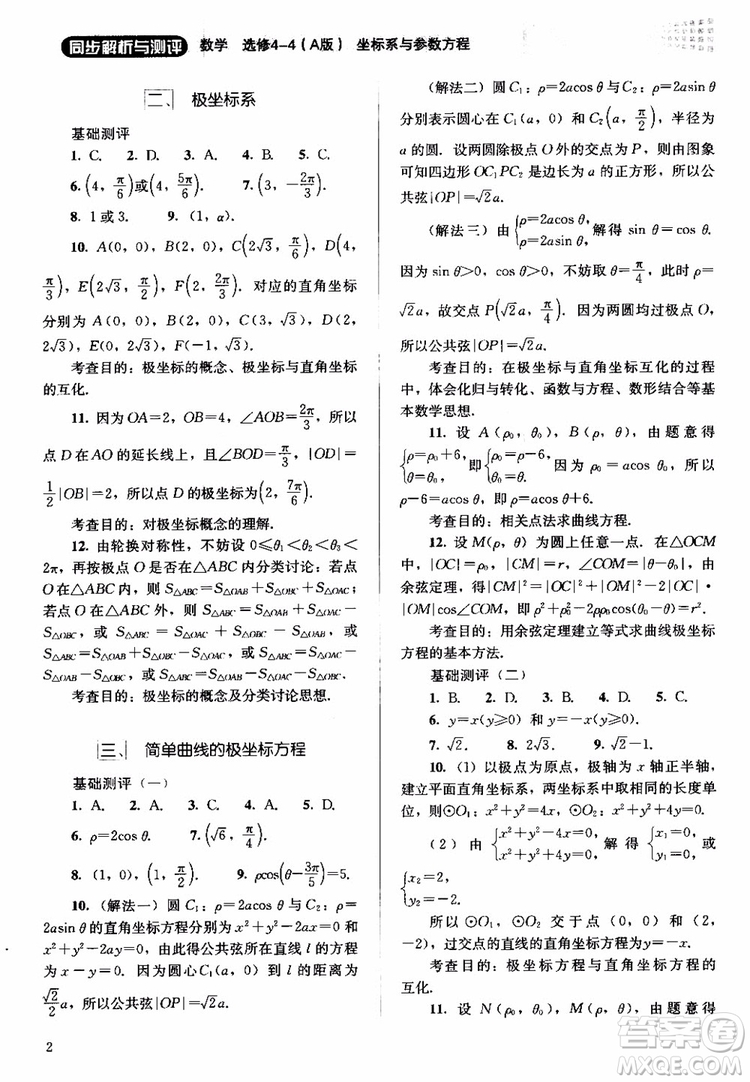 同步解析与测评 数学 选修4-4(A版) 坐标系与参数方程
二、 极坐标系
基础测评
1. C. 2. D. 3. A. 4. C. 5. C.
6. (4, π/6)或(4, 5π/6). 7. (3, -3π/4).
8. 1 或 3. 9. (1, α).
10. A(0, 0), B(2, π/4), D(4,
π/3), E(2√3, π/2), F(√3, π). 对应的直角坐标
分别为 A(0, 0), B(√2, √2), D(2,
2√3), E(0, 2√3), F(-√3, 0).
考查目的: 极坐标的概念、极坐标与直角坐标
的互化.
11. 因为 OA=2, OB=4, ∠AOB=2π/3, 所以
点 D 在 AO 的延长线上, 且∠BOD=π/3, |OD|=
1/2|OB|=2, 所以点 D 的极坐标为(2, 7π/6).
考查目的: 对极坐标概念的理解.
12. 由轮换对称性, 不妨设 0≤θ₁<θ₂<θ₃<
2π, 再按极点 O 是否在△ABC 内分类讨论: 若点
O 在△ABC 内, 则 S△ABC=S△OAB+S△OBC+S△OAC;
若点 O 在△ABC 外, 则 S△ABC=S△OAB+S△OAC-
S△OBC, S△ABC=S△OAC+S△OBC-S△OAB 或
S△ABC=S△OAB+S△OBC-S△OAC.
考查目的: 极坐标的概念及分类讨论思想.
三、 简单曲线的极坐标方程
基础测评 (一)
1. A. 2. A. 3. D. 4. C. 5. C.
6. ρ=2cos θ. 7. (√6, π/4).
8. (1, 0), (1, π/2). 9. ρcos(θ-3π/5)=5.
10. (解法一) 圆 C₁: ρ=2acos θ 与 C₂: ρ=
2asin θ 的直角坐标方程分别为 x²+y²-2ax=0 和
x²+y²-2ay=0, 由此得公共弦所在直线 l 的方程
为 x-y=0. 因为圆心 C₁(a, 0) 到 l 的距离为
√2/2 a, 所以公共弦 |OP|=√2a.
2
(解法二) 圆 C₁: ρ=2acos θ 与 C₂: ρ=2asin θ
分别表示圆心在 C₁(a, 0) 和 C₂(a, π/2), 半径为
a 的圆. 设两圆除极点 O 外的交点为 P, 则由图象
可知 OC₁PC₂ 是边长为 a 的正方形, 所以公
共弦 |OP|=√2a.
(解法三) 由{ρ=2acos θ, ρ=2asin θ, 解得 sin θ=cos θ.
因为只能有 sin θ>0, cos θ>0, 不妨取 θ=π/4, 此时 ρ=
√2a, 故交点 P(√2a, π/4). 因为两圆均过极点 O,
所以公共弦 |OP|=√2a.
考查目的: 在极坐标与直角坐标互化的过程
中, 体会化归与转化、函数与方程、数形结合等基
本数学思想.
11. 设 A(ρ₀, θ₀), B(ρ, θ), 由题意得
{ρ=ρ₀+6, θ=θ₀, 即{ρ₀=ρ-6, θ₀=θ. 因为 ρ₀=acos θ₀, 所以
ρ-6=acos θ, 即 ρ=acos θ+6.
考查目的: 相关点法求曲线方程.
12. 设 M(ρ, θ) 为圆上任意一点. 在△OCM
中, |OM|=ρ, |OC|=ρ₀, |CM|=r, ∠COM=θ-θ₀, 由
余弦定理得 |CM|²=|OC|²+|OM|²-2|OC|·
|OM|cos∠COM, 即 ρ²+ρ₀²-2ρρ₀cos(θ-θ₀)-r²=0.
考查目的: 用余弦定理建立等式求曲线极坐标
方程的基本方法.
基础测评 (二)
1. B. 2. B. 3. C. 4. D. 5. B.
6. y=x(x≥0) 和 y=-x(x≥0).
7. √2. 8. 2√3. 9. √2.
10. (1) 以极点为原点, 极轴为 x 轴正半轴,
建立平面直角坐标系, 两坐标系中取相同的长度单
位, 则⊙O₁: x²+y²=4x, ⊙O₂: x²+y²=-4y.
(2) 由{x²+y²-4x=0, x²+y²+4y=0, 解得{x₁=0, y₁=0, 或
{x₂=2, y₂=-2.
所以 ⊙O₁, ⊙O₂ 交于点 (0, 0) 和 (2,
-2), 过交点的直线的直角坐标方程为 y=-x.
考查目的: 极坐标方程与直角坐标方程的
互化.
11. 设 N(ρ₀, θ₀), M(ρ, θ), 由题意得
答案圈